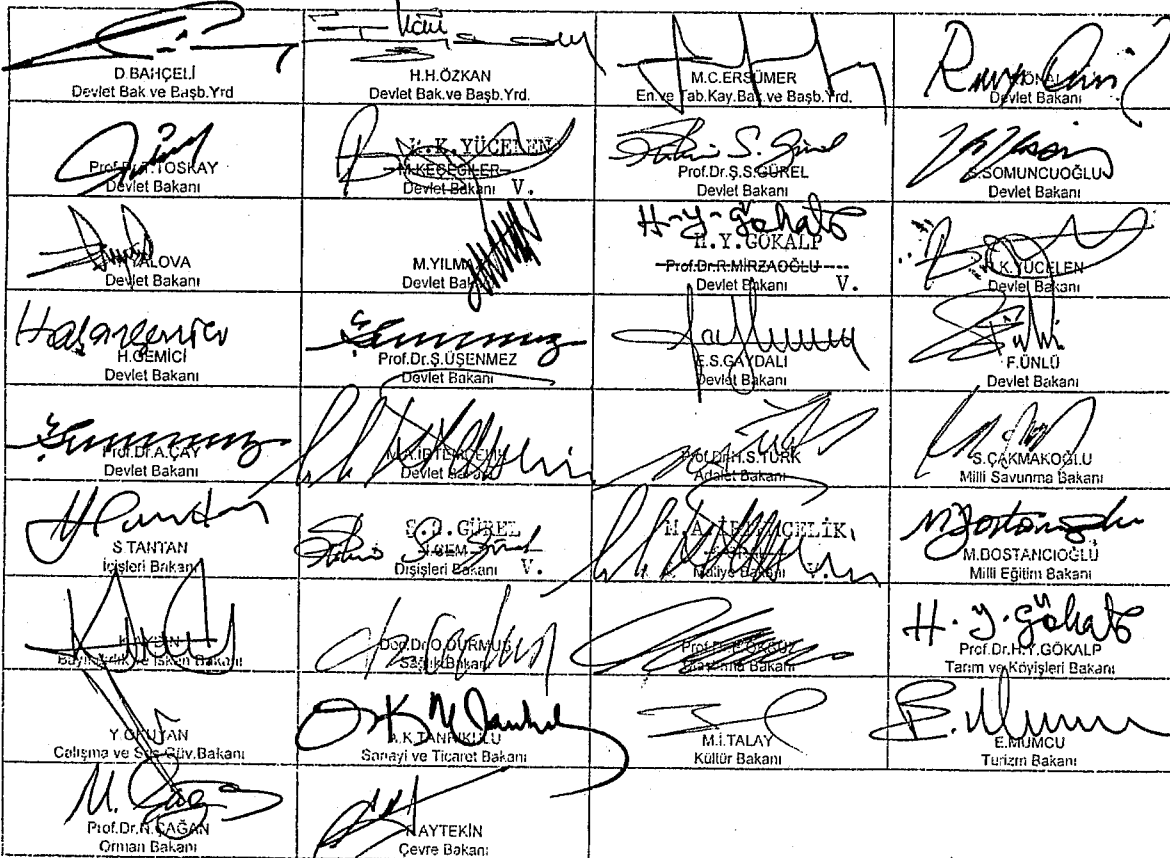 D.BAHÇELİ
Devlet Bak.ve Başb.Yrd
H.H.ÖZKAN
Devlet Bak.ve Başb.Yrd.
M.C.ERSÜMER
En.ve Tab.Kay.Bak.ve Başb.Yrd.
Devlet Bakanı
Prof.Dr.T.TOSKAY
Devlet Bakanı
R.K.YÜCELEN
M.KEÇECİLER
Devlet Bakanı V.
Prof.Dr.Ş.S.GÜREL
Devlet Bakanı
S.SOMUNCUOĞLU
Devlet Bakanı
Y.YALOVA
Devlet Bakanı
M.YILMAZ
Devlet Bakanı
H-y-gökalp
H.Y.GÖKALP
Prof.Dr.R.MİRZAOĞLU
Devlet Bakanı V.
R.K.YÜCELEN
Devlet Bakanı
H.GEMİCİ
Devlet Bakanı
Prof.Dr.Ş.ÜŞENMEZ
Devlet Bakanı
E.S.GAYDALI
Devlet Bakanı
F.ÜNLÜ
Devlet Bakanı
Prof.Dr.A.ÇAY
Devlet Bakanı
M.A.İRTEMÇELİK
Devlet Bakanı
Prof.Dr.H.S.TÜRK
Adalet Bakanı
S.ÇAKMAKOĞLU
Milli Savunma Bakanı
S.TANTAN
İçişleri Bakanı
Ş.S.GÜREL
İ.CEM
Dışişleri Bakanı V.
M.A.İRTEMÇELİK
Maliye Bakanı V.
M.BOSTANCIOĞLU
Milli Eğitim Bakanı
K.AYDIN
Bayındırlık ve İskan Bakanı
Doç.Dr.O.DURMUŞ
Sağlık Bakanı
Prof.Dr.E.ÖKSÜZ
Ulaştırma Bakanı
H.y.gökalp
Prof.Dr.H.Y.GÖKALP
Tarım ve Köyişleri Bakanı
Y.OKUYAN
Çalışma ve Sos.Güv.Bakanı
A.K.TANRIKULU
Sanayi ve Ticaret Bakanı
M.İ.TALAY
Kültür Bakanı
E.MUMCU
Turizm Bakanı
Prof.Dr.N.ÇAĞAN
Orman Bakanı
F.AYTEKİN
Çevre Bakanı